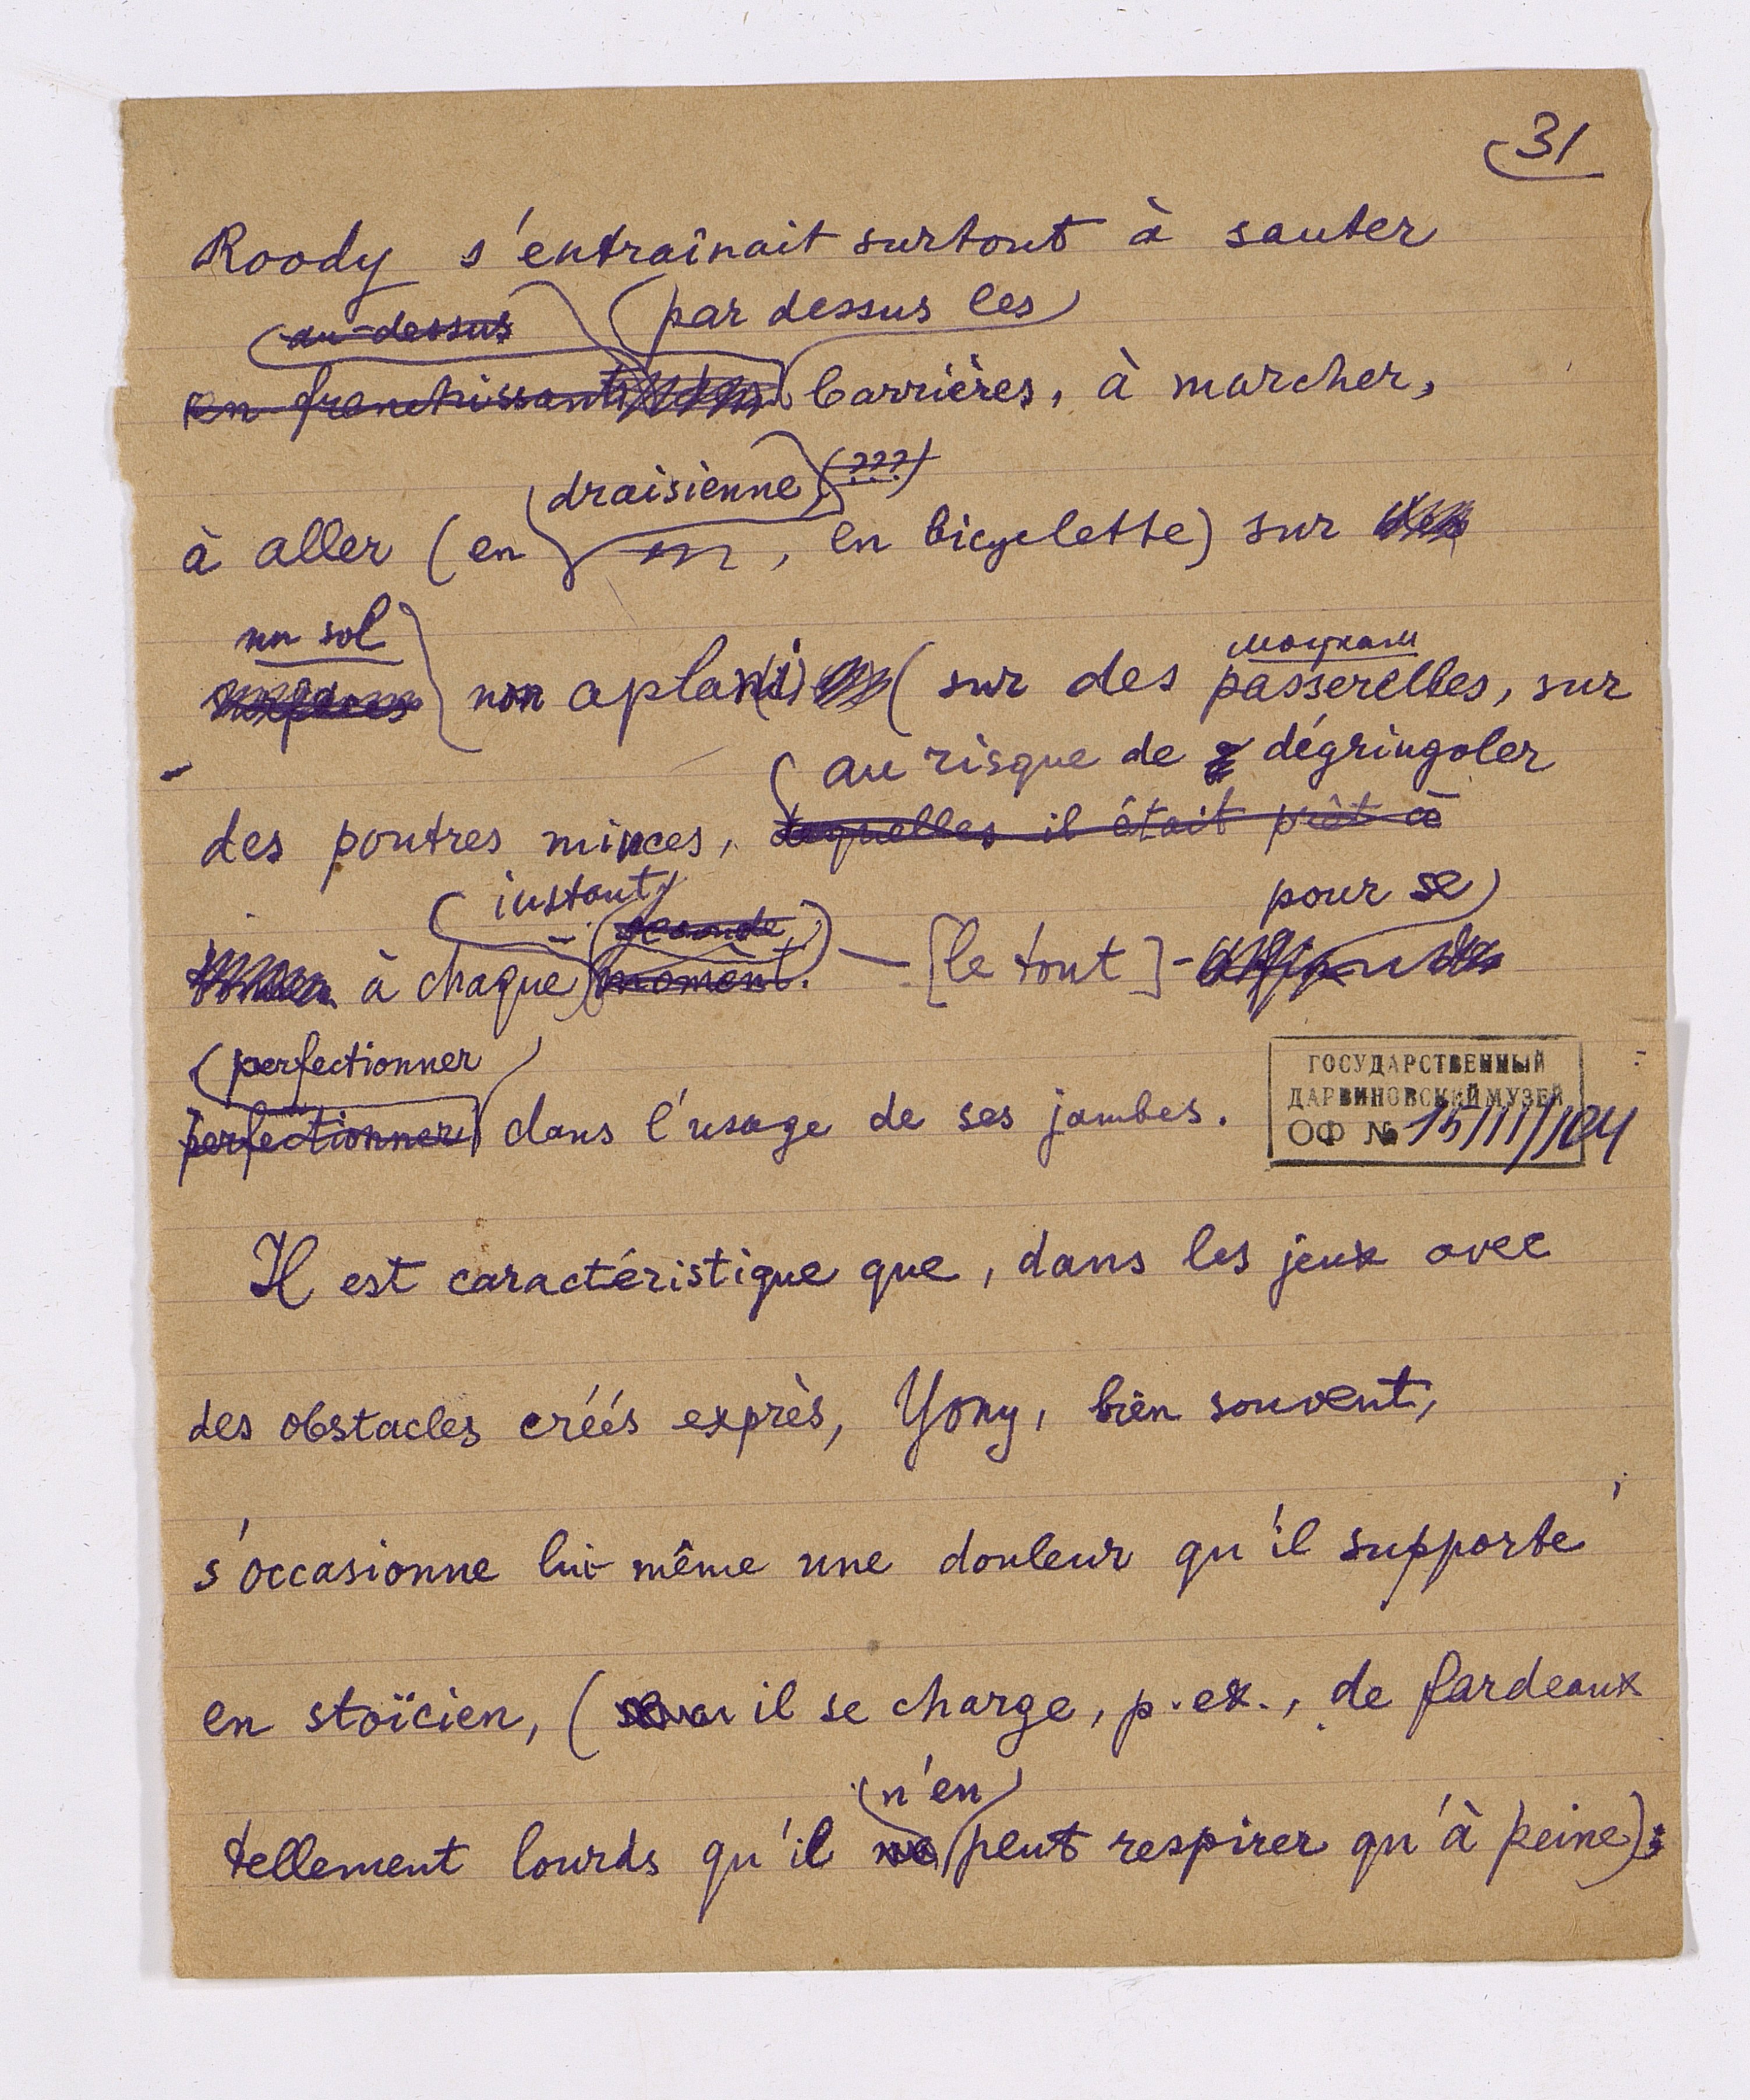 31
Roody s'entraînait surtout à sauter
au-dessus par dessus les
en franchissant barrières, à marcher,
draisienne (???)
à aller (en , en bicyclette) sur
un sol мосткам
surfaces non aplani (sur des passerelles, sur
au risque de dégringoler
des poutres minces, desquelles il était prêt à
instant seconde pour se
à chaque moment. — [le tout] -
perfectionner
perfectionner dans l'usage de ses jambes.
ГОСУДАРСТВЕННЫЙ
ДАРВИНОВСКИЙ МУЗЕЙ
ОФ №
Il est caractéristique que, dans les jeux avec
des obstacles créés exprès, Yony, bien souvent,
s'occasionne lui-même une douleur qu'il supporte
en stoïcien, ( il se charge, p. ex., de fardeaux
n'en
tellement lourds qu'il ne peut respirer qu'à peine);